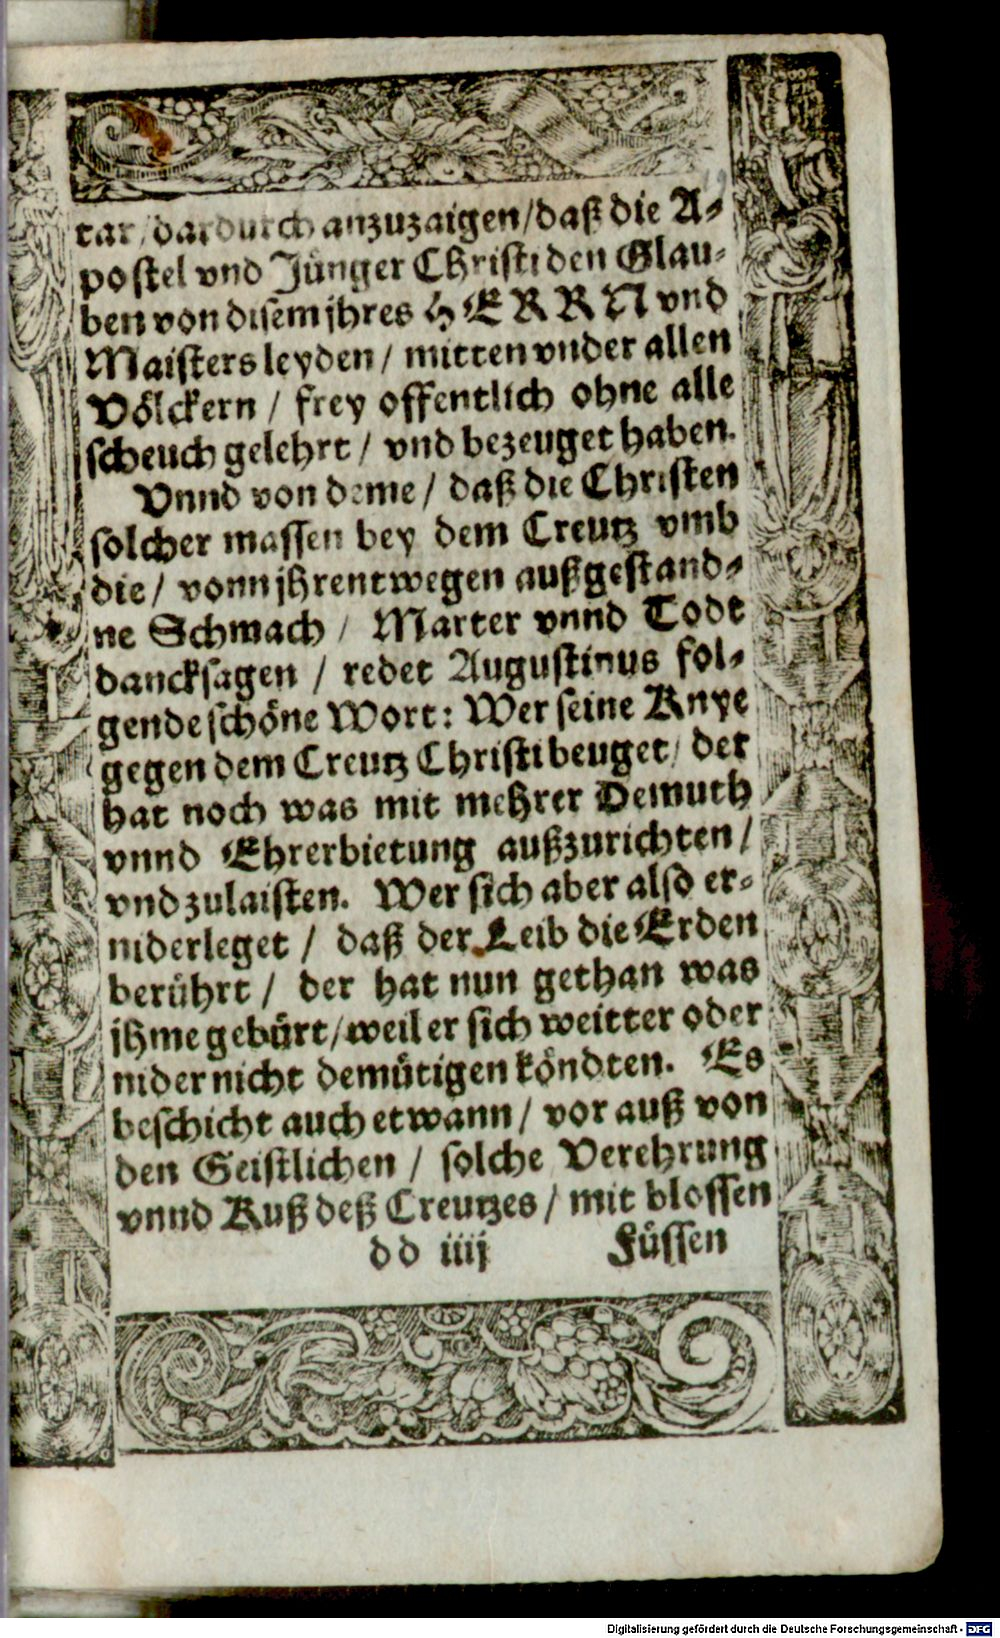 tar/dardurch anzuzaigen/daß die A⸗
postel vnd Jünger Christi den Glau⸗
ben von disem jhres HERRN vnd
Maisters leyden / mitten vnder allen
Völckern / frey offentlich ohne alle
scheuch gelehrt / vnd bezeuget haben.
Vnnd von deme / daß die Christen
solcher massen bey dem Creutz vmb
die / vonn jhrentwegen außgestand⸗
ne Schmach / Marter vnnd Todt
dancksagen / redet Augustinus fol⸗
gende schöne Wort: Wer seine Knye
gegen dem Creutz Christi beuget/ der
hat noch was mit mehrer Demuth
vnnd Ehrerbietung außzurichten /
vnd zulaisten. Wer sich aber also er⸗
niderleget / daß der Leib die Erden
berührt / der hat nun gethan was
jhme gebürt/weil er sich weitter oder
nider nicht demütigen köndten. Es
beschicht auch etwann / vor auß von
den Geistlichen / solche Verehrung
vnnd Kuß deß Creutzes / mit blossen
dd iiij Füssen
Digitalisierung gefördert durch die Deutsche Forschungsgemeinschaft - DFG